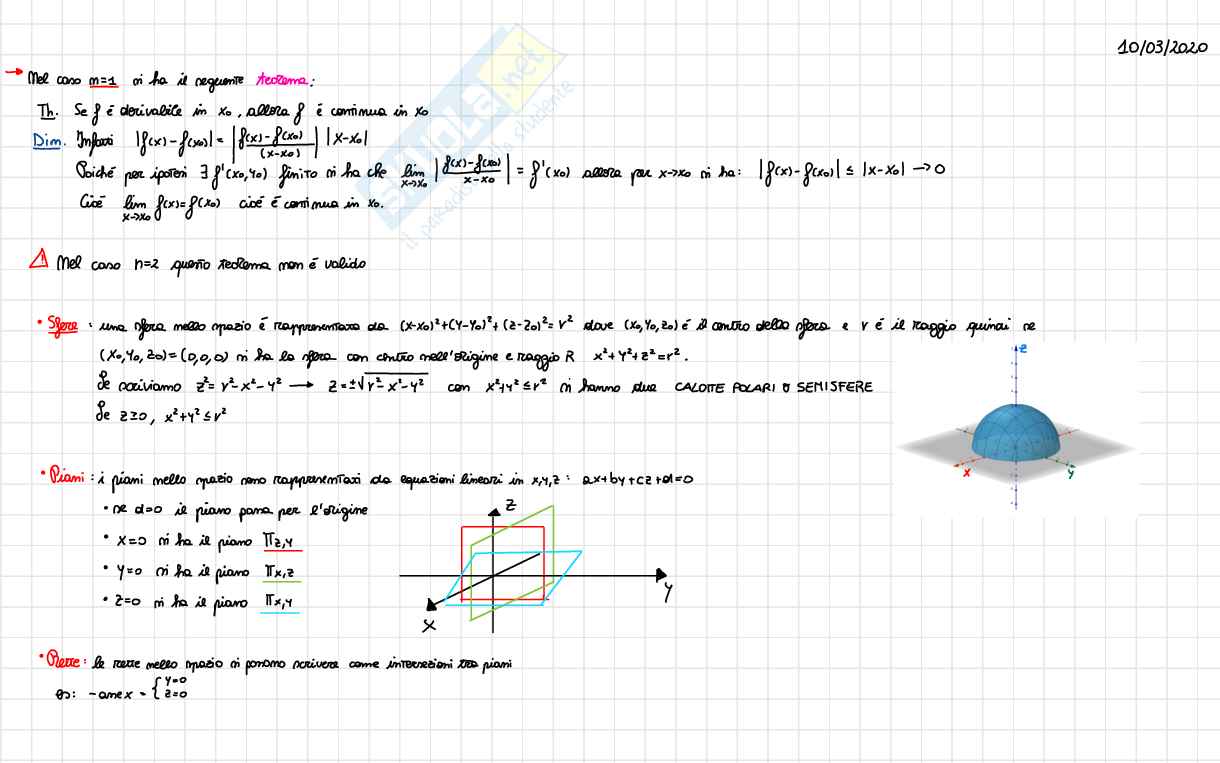 10/03/2020
→ Nel caso n=1 si ha il seguente teorema:
Th. Se f è derivabile in x₀, allora f è continua in x₀
Dim. Infatti |f(x)-f(x₀)| = |f(x)-f(x₀)/(x-x₀)| |x-x₀|
Poiché per ipotesi ∃ f'(x₀,y₀) finito si ha che lim x→x₀ |f(x)-f(x₀)/x-x₀| = f'(x₀) allora per x→x₀ si ha: |f(x)-f(x₀)| ≤ |x-x₀| → 0
Cioè lim x→x₀ f(x)=f(x₀) cioè è continua in x₀.
⚠ Nel caso n=2 questo teorema non è valido
• Sfere: una sfera nello spazio è rappresentata da (x-x₀)²+(y-y₀)²+(z-z₀)²=r² dove (x₀,y₀,z₀) è il centro della sfera e r è il raggio quindi se
(x₀,y₀,z₀)=(0,0,0) si ha la sfera con centro nell'origine e raggio R x²+y²+z²=r².
Se scriviamo z²=r²-x²-y² → z=±√r²-x²-y² con x²+y²≤r² si hanno due CALOTTE POLARI O SEMISFERE
Se z≥0, x²+y²≤r²
z
x
y
• Piani: i piani nello spazio sono rappresentati da equazioni lineari in x,y,z: ax+by+cz+d=0
• se d=0 il piano passa per l'origine
• x=0 si ha il piano πz,y
• y=0 si ha il piano πx,z
• z=0 si ha il piano πx,y
z
y
x
• Rette: le rette nello spazio si possono scrivere come intersezioni tra piani
es: -asse x = { y=0
z=0
SKUOLA.net
il paradiso dello studente